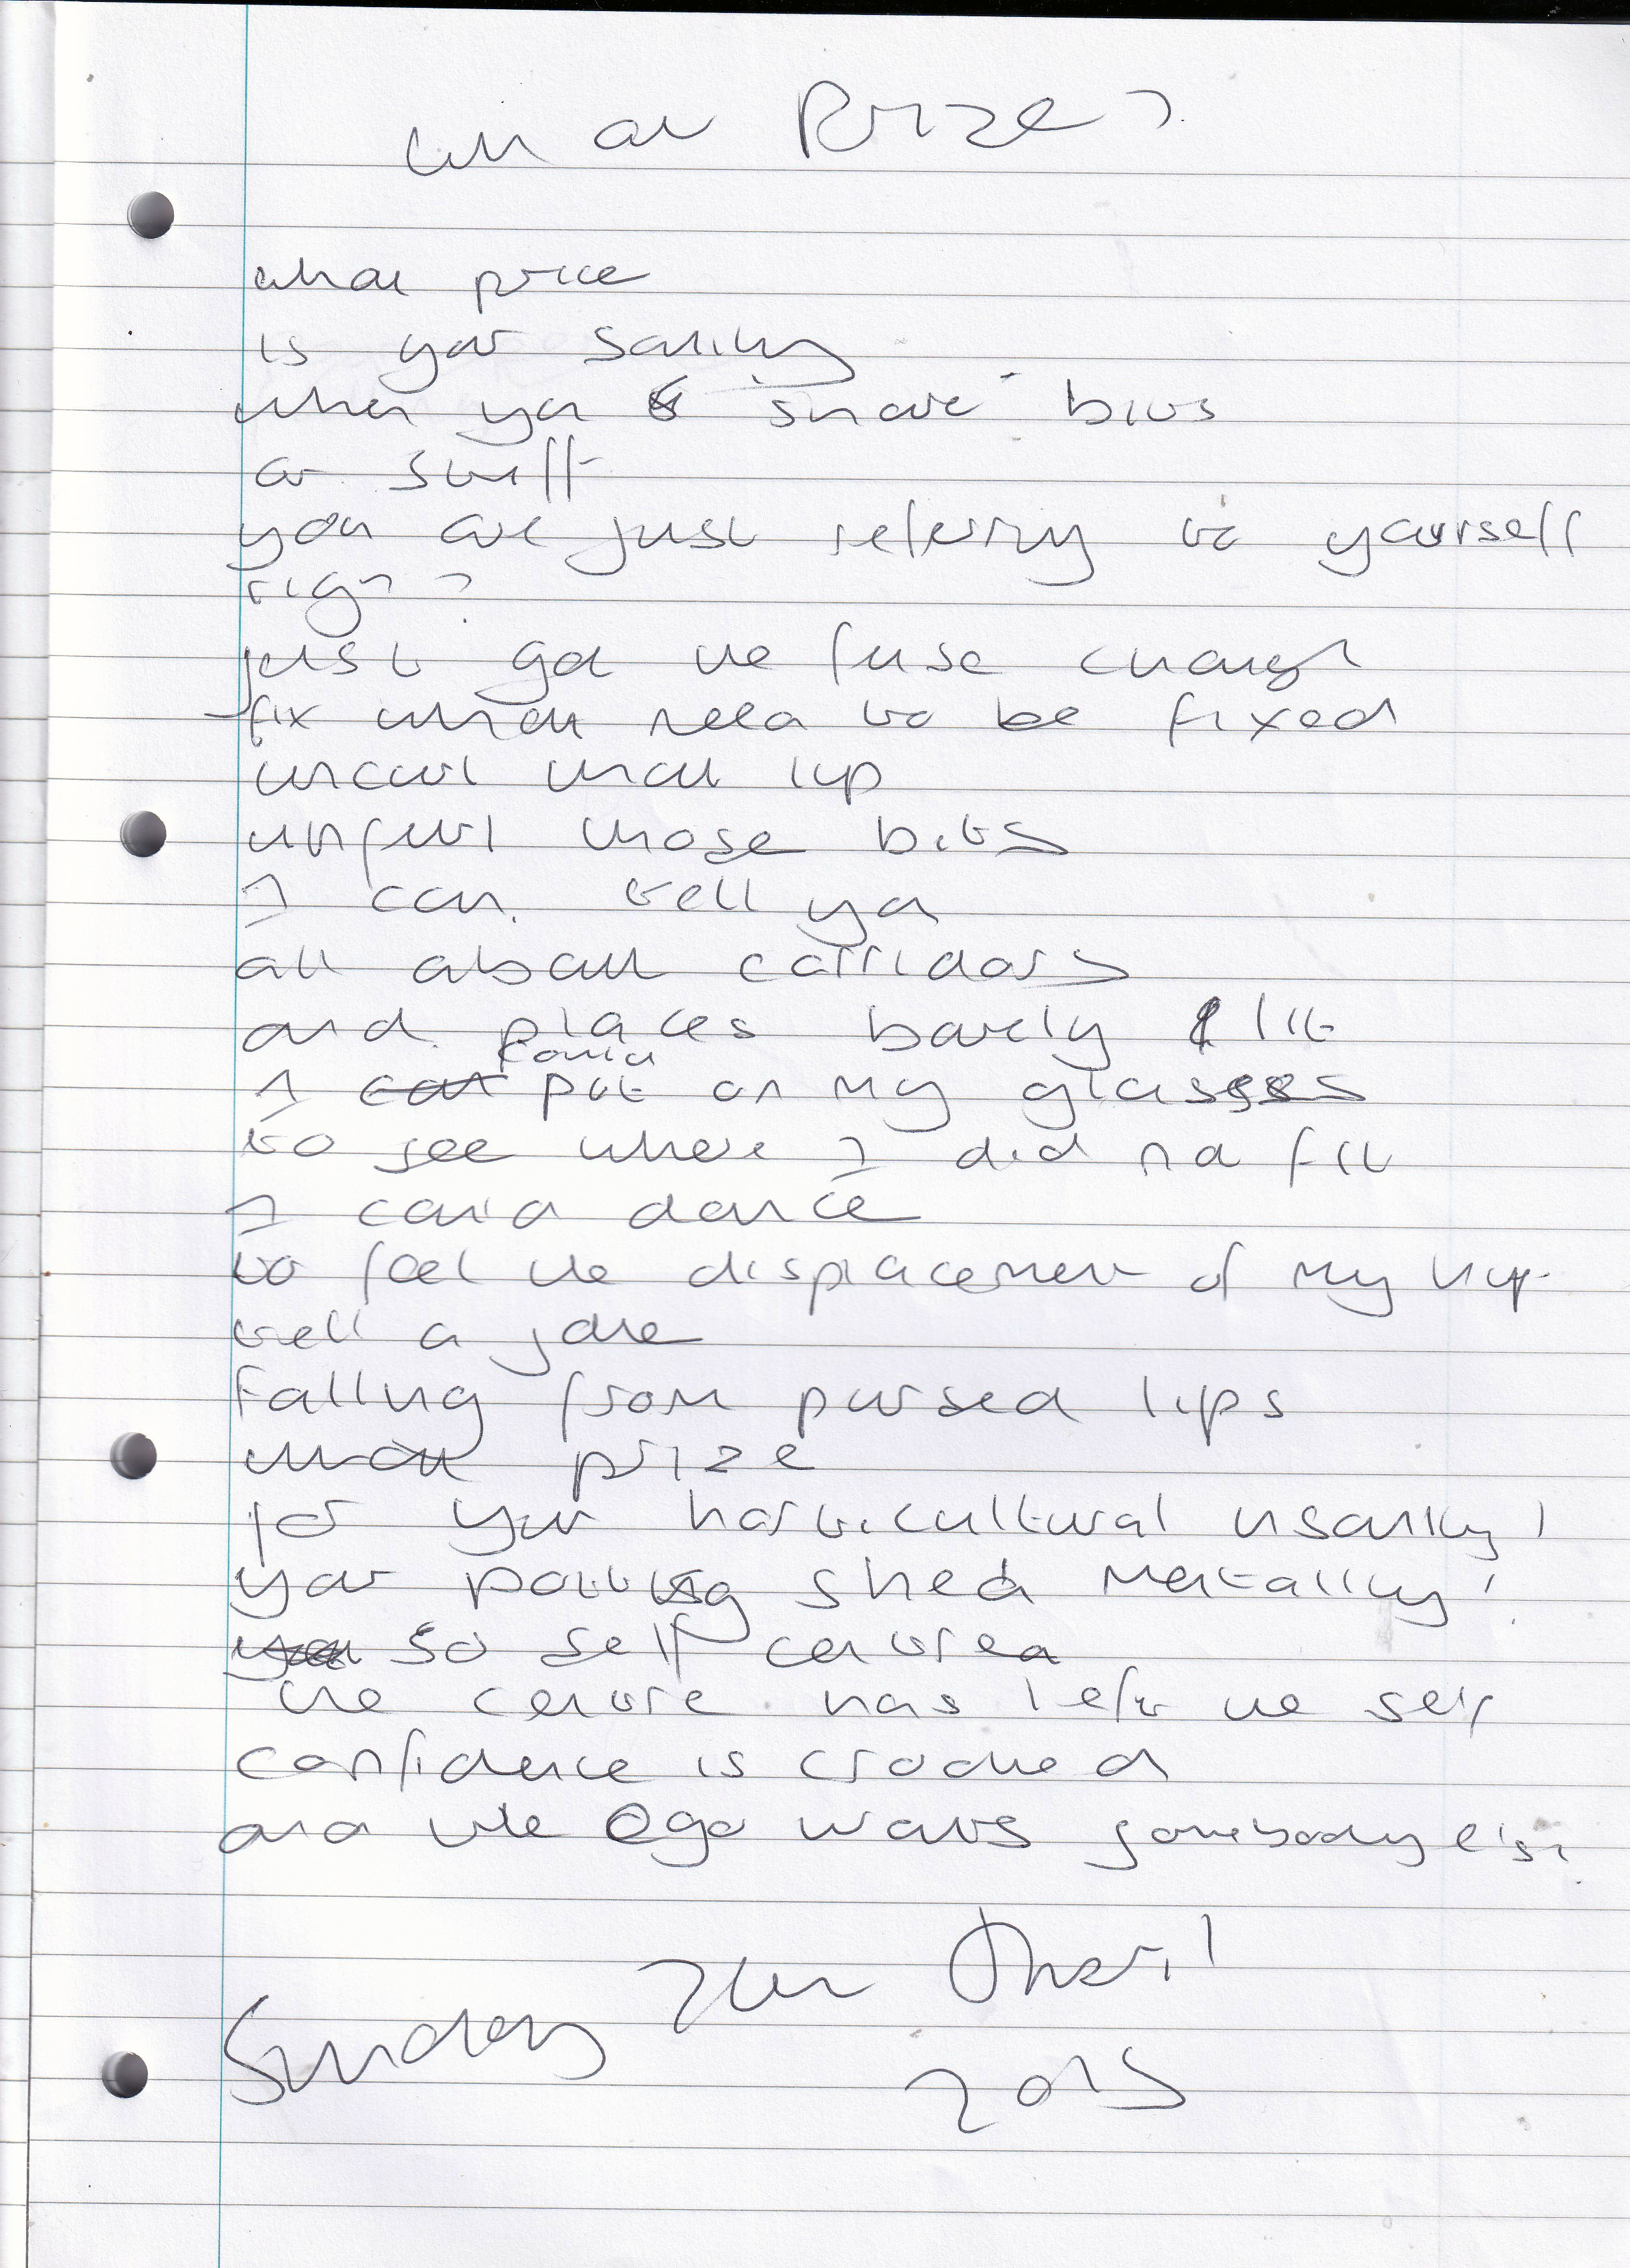 What Prize?
what price
is your sanity
when you share bits
or stuff
you are just referring to yourself
right?
just got the fuse
fix what need to be fixed
uncurl that lip
unfurl those bits
I can tell ya
all about corridors
and places barely lit
I could put on my glasses
to see where I did not fit
I could dance
to feel the displacement of my hip
tell a joke
falling from pursed lips
what prize
for your horticultural insanity!
your potting shed mentality!
so self centred
the centre has left the self
confidence is crooked
and the ego wants somebody else
Sunday 2015